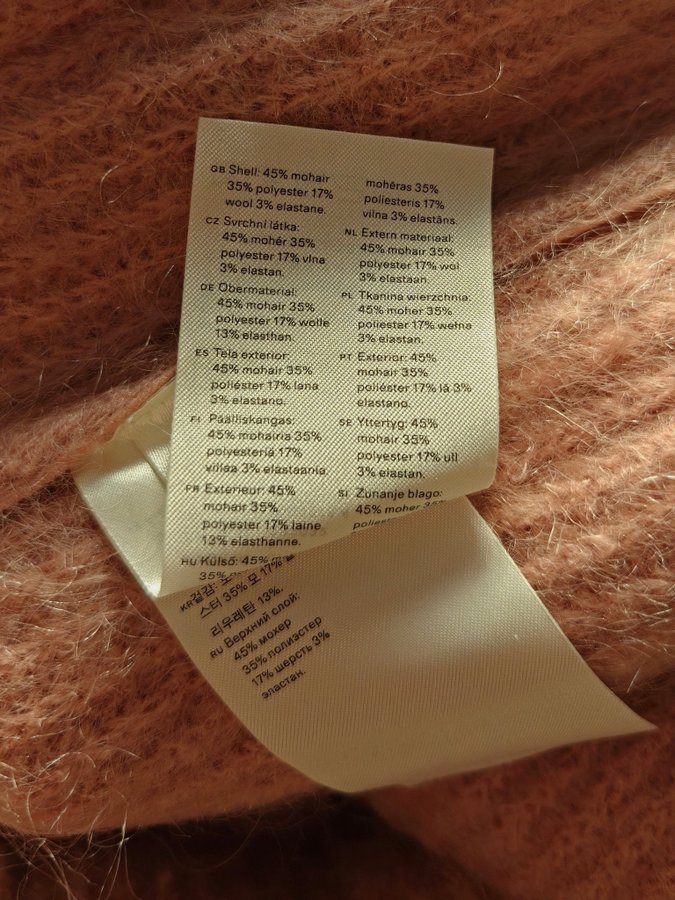 GB Shell: 45% mohair
35% polyester 17%
wool 3% elastane.
CZ Svrchní látka:
45% mohér 35%
polyester 17% vlna
3% elastan.
DE Obermaterial:
45% mohair 35%
polyester 17% wolle
13% elasthan.
ES Tela exterior:
45% mohair 35%
poliéster 17% lana
3% elastano.
FI Päälliskangas:
45% mohairia 35%
polyesteriä 17%
villaa 3% elastaania.
FR Exterieur: 45%
mohair 35%
polyester 17% laine
13% elasthanne.
HU Külső: 45%
35%
mohēras 35%
poliesteris 17%
vilna 3% elastāns.
NL Extern materiaal:
45% mohair 35%
polyester 17% wol
3% elastaan.
PL Tkanina wierzchnia:
45% moher 35%
poliester 17% wełna
3% elastan.
PT Exterior: 45%
mohair 35%
poliéster 17% lã 3%
elastano.
SE Yttertyg: 45%
mohair 35%
polyester 17% ull
3% elastan.
SI Zunanje blago:
45% moher 35%
KR 겉감:
스터 35% 모 17%
리우레탄 13%.
RU Верхний слой:
45% мохер
35% полиэстер
17% шерсть 3%
эластан.